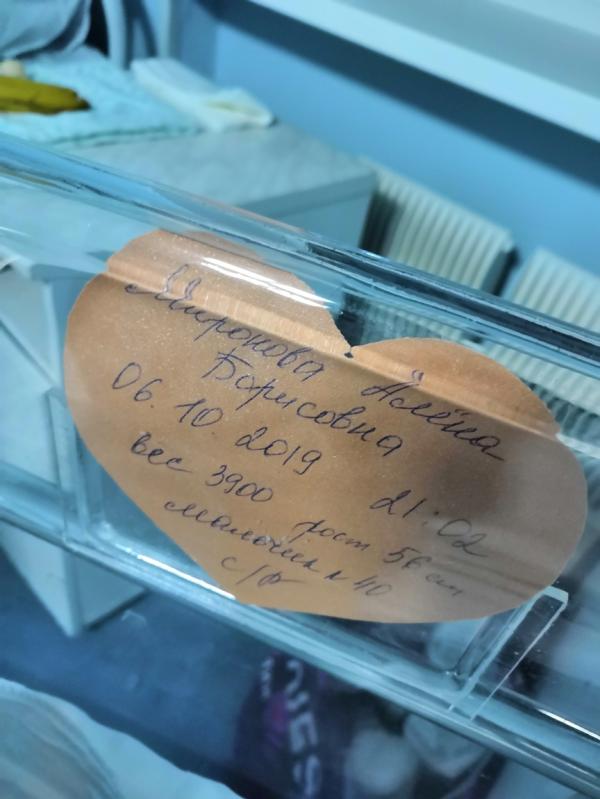 Миронова Алёна
Борисовна
06. 10 2019 21:02
вес 3900 рост 56 см
мальчик
с/ф